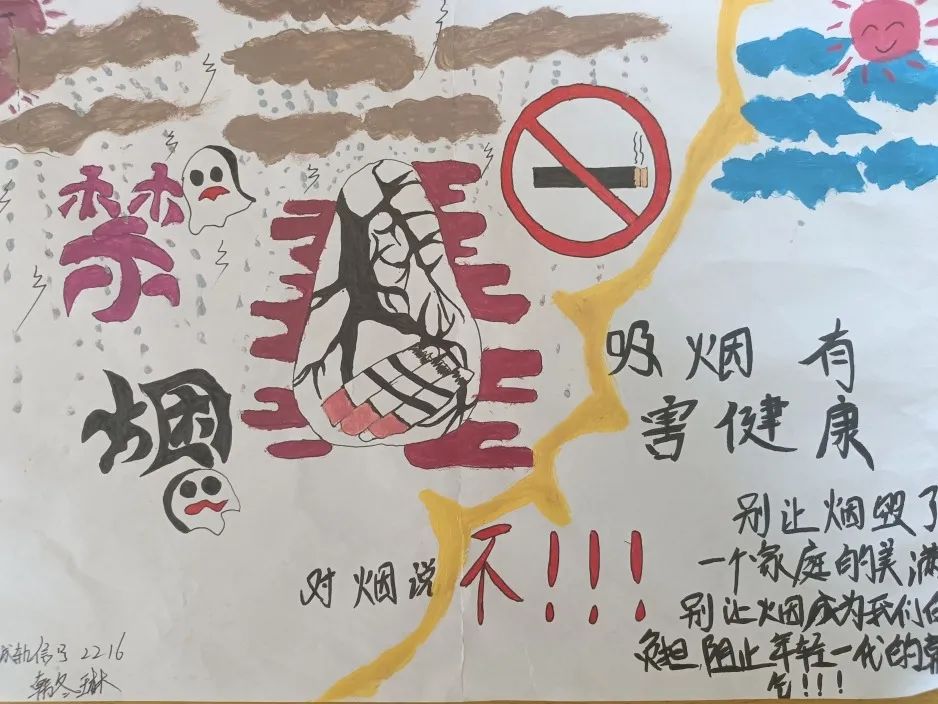 禁
烟
吸烟有
害健康
对烟说不!!!
别让烟毁了
一个家庭的美满
别让烟成为我们的
负担阻止年轻一代的朝
气!!!
轨信号2216
韩冬琳